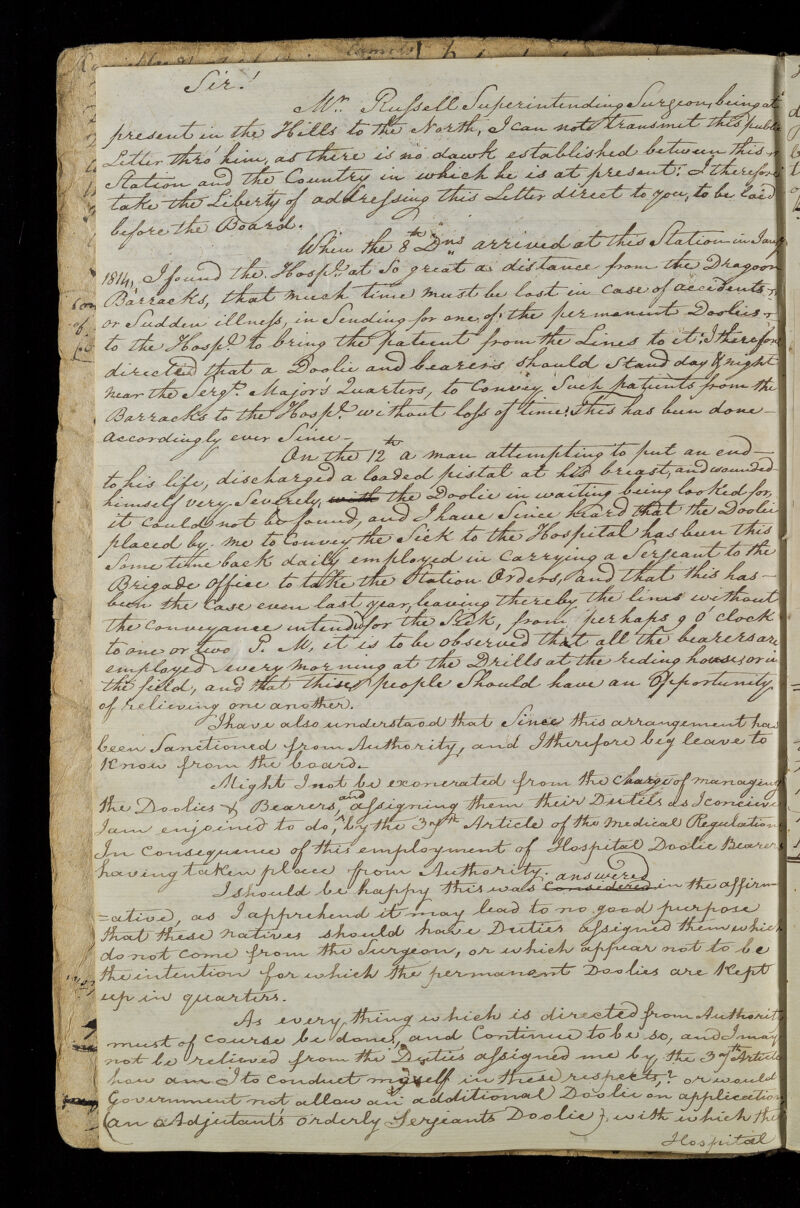 Sir!
Mr. Russell Superintending Surgeon, being at
present in the Hills to the North, I can not transmit this public
Letter thro' him, as there is no dawk established between this
Station and the Country in which he is at present; I therefore
take the Liberty of addressing this Letter direct to you, to be laid
before the Board.
When the 8th Dns arrived at this Station in Jany
1814, I found the Hospl. at So great a distance from the Dragoon
Barracks, that much time must be lost in case of accidents
or Sudden illness, in Sending for one of the permanent Doolies
to the Hospl. to bring the pateent from the Lines to it; I therefore
directed that a Doolie and bearers should Stand day & night
near the Sergt. Major's Quarters, to Convey Such patients from the
Barracks to the Hospl. without loss of time; This has been done
accordingly ever Since.
On the 12th a man attempting to put an end
to his life, discharged a loaded pistal at his breast, and wounded
himself very Severely, with the Doolie in waiting being looked for,
it could not be found, and I have Since heard that the Doolie
placed by me to Convey the Sick to the Hospital has been this
Some time back daily employed in carrying a Serjeant to the
Brigade office to take the Station Orders, and that this has
been the case even last year, leaving thereby the lines without
the conveyance intended for the Sick, from perhaps 9 O'clock
to one or two P. M, it is to be observed that all the bearers are
employed every morning at the Drills at the riding house, or in
the field, and that these people Should have an Opportunity
of relieving one another.
I have also understood that Since this arrangement has
been Sanctioned from Authority, and I therefore beg leave to
Know from the board.
Might I not be exonerated from the charge of managing
the Doolies & Bearers, and assigning them their Duties as I concieve
I am enjoined to do, by the 39th Article of the Medical Regulation
In consequence of this employment of Hospital Doolie Bearers
having taken place from Authority.
I should be happy this was considered answered in the affirm-
=ative, as I apprehend it may lead to no good purpose
that these natives should have Duties assigned them which
do not come from the Surgeon, or which appear not to be
the intention for which the permanent Doolies are Kept
up in quarters.
As every thing which is directed from Authority
must of course be done, and Continue to be so, and I may
not be relieved from the Duties assigned me by the 39th Article
how am I to conduct myself in these respects? or would
Government not allow an additional Doolie on application
(an adjutant's orderly Serjeants Doolie) with which the
Hospital